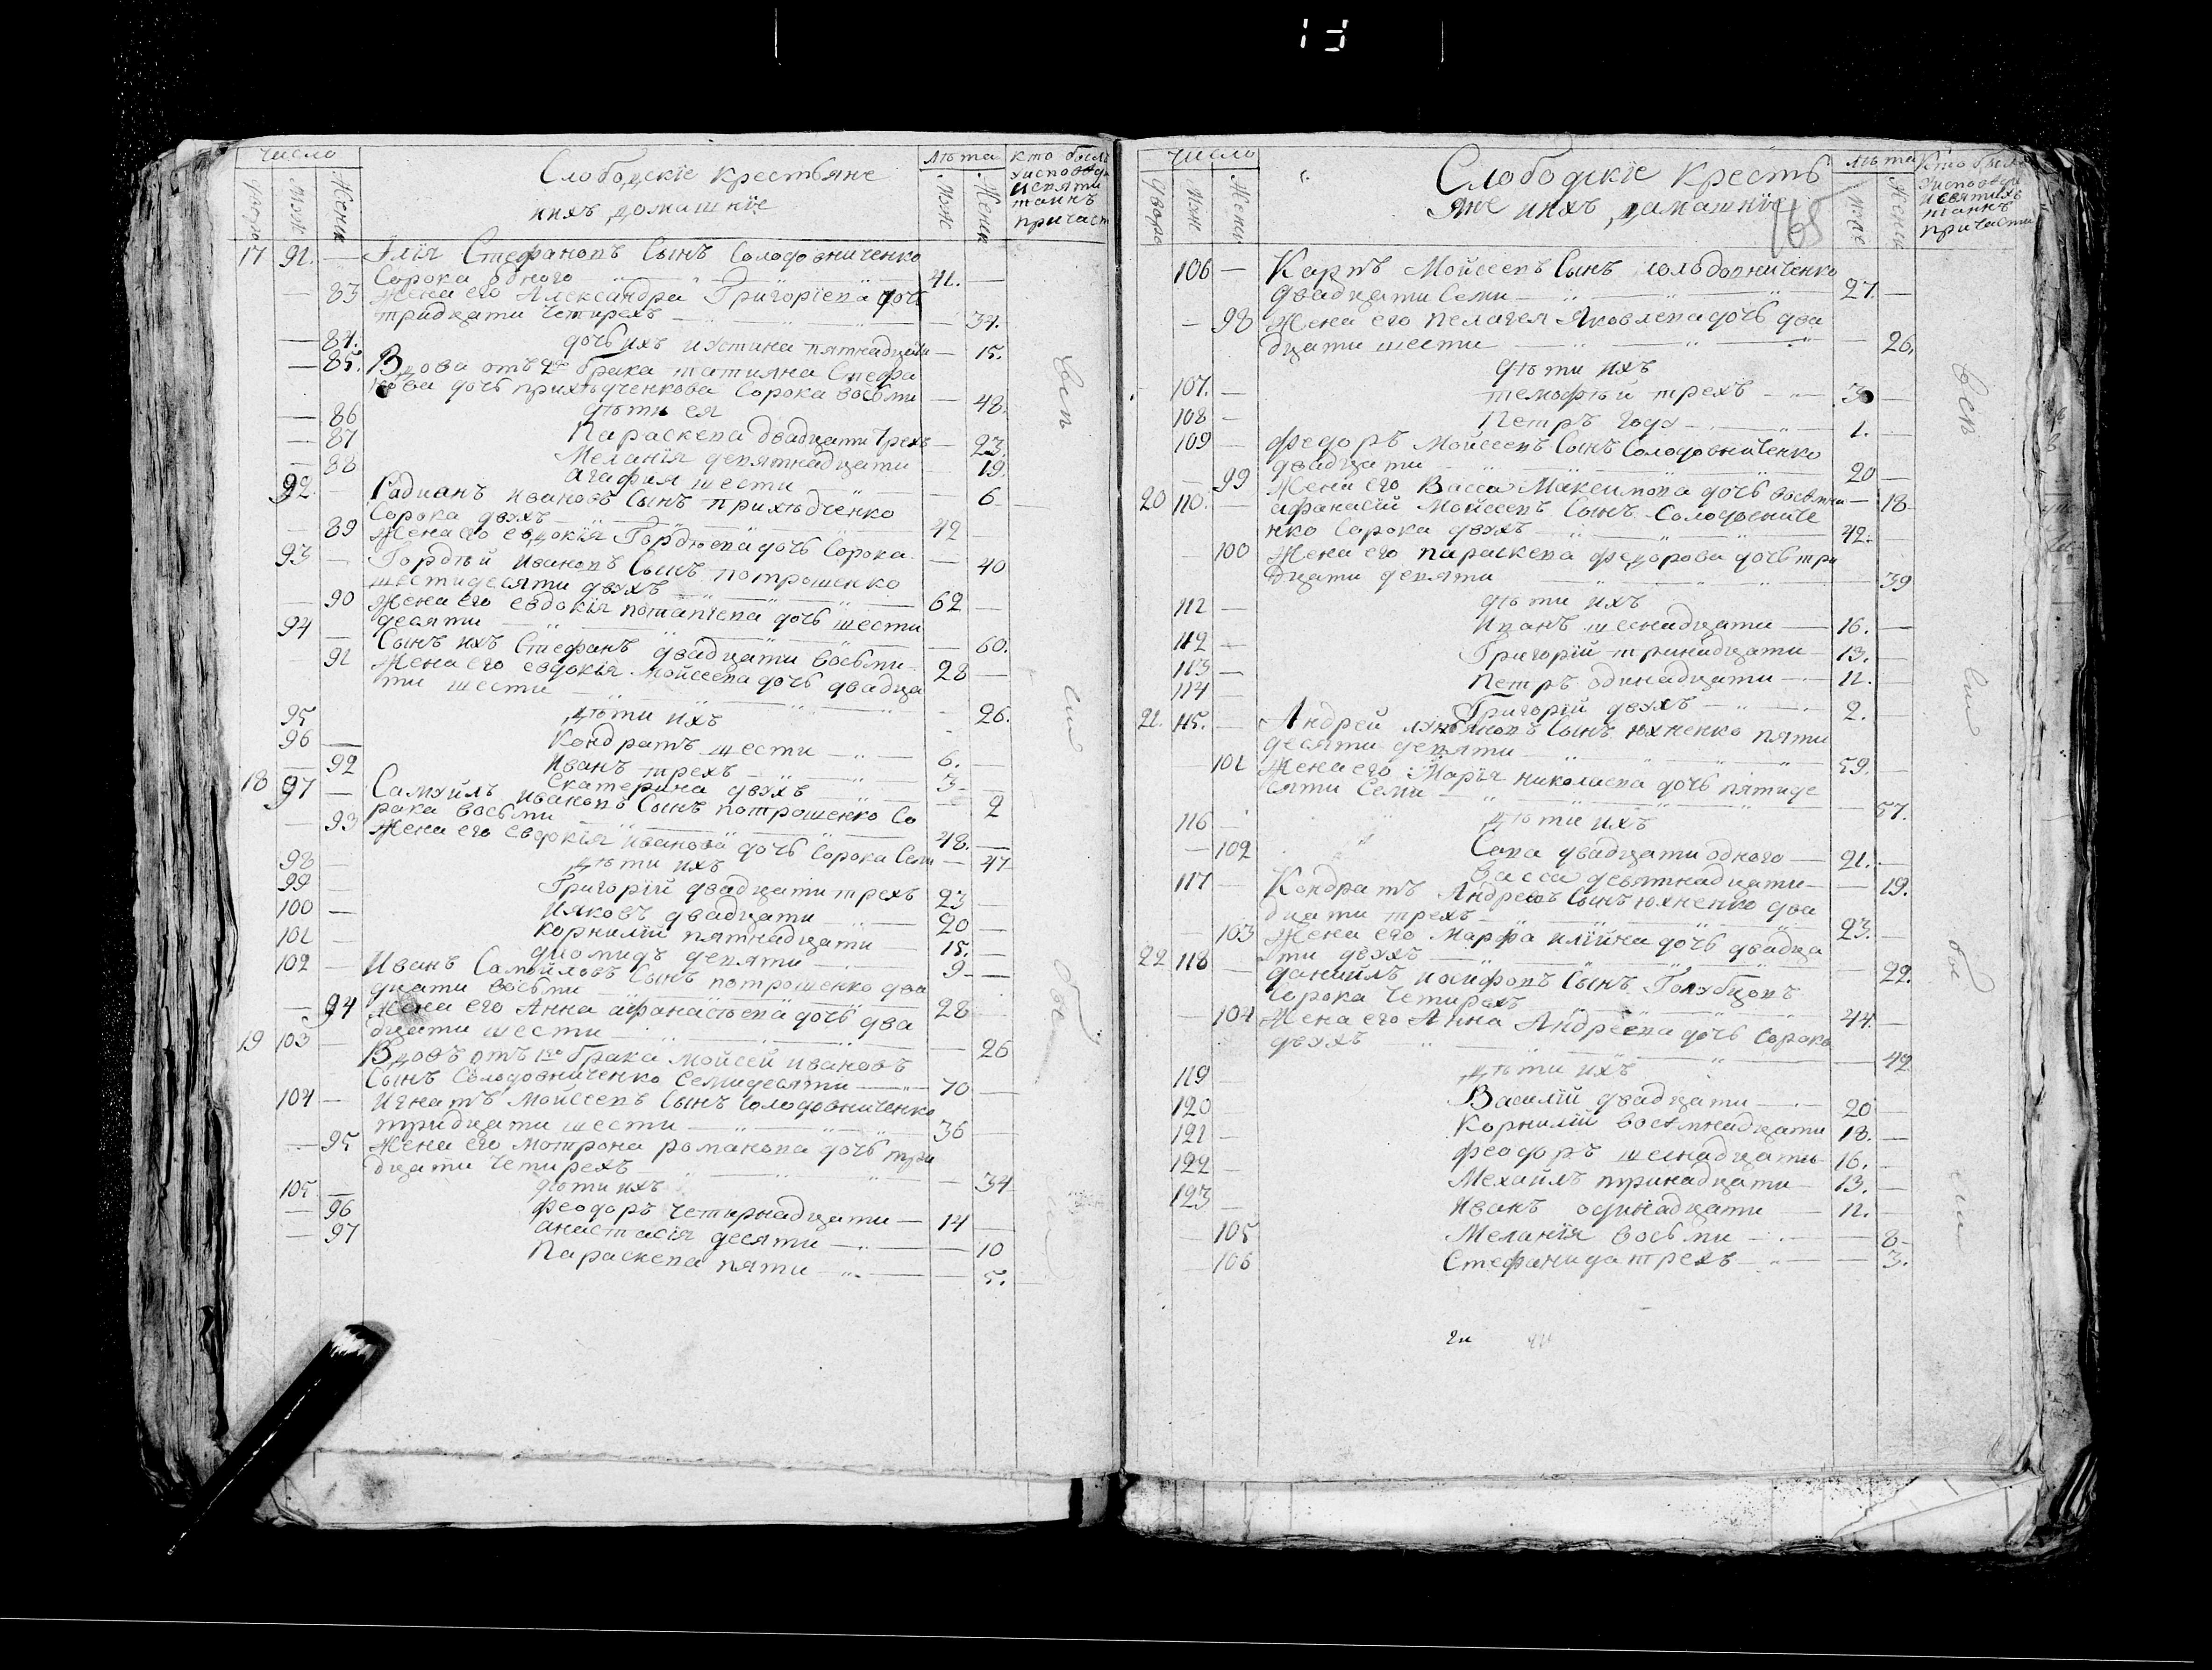 13
число
двора
Муж
Женс
Слободскіе крестьяне
ихъ домашніе
лѣта
Муж
Женс
кто были
у исповѣди
и святи
таинъ
причаст
17 91. — Илія Стефановъ Сынъ Солодовниченко
Сорока одного 41. —
— 83 Жена его Александра Григоріева дочь
тридцати четирехъ — 34.
— 84. дочь ихъ иустина пятнадцати — 15.
— 85. Вдова отъ 2го брака татияна Стефа
нова дочь прихѣдченкова Сорока восьми — 48.
дѣти ея
— 86 Параскева двадцати трехъ — 23.
— 87 Меланія девятнадцати — 19
— 88 агафия шести — 6
92. — Радианъ ивановъ Сынъ прихѣдченко
Сорока двухъ 42 —
— 89 Жена его евдокія Гордѣева дочь Сорока — 40
93 — Гордѣй ивановъ Сынъ потрошенко
шестидесяти двухъ 62 —
— 90 Жена его евдокія потапіева дочь шести
десяти — 60.
94 — Сынъ ихъ Стефанъ двадцати восьми 28 —
91 Жена его евдокія Мойсеева дочь двадца
ти шести — 26.
дѣти ихъ
95 Кондратъ шести 6. —
96 — Иванъ трехъ 3 —
— 92 Екатерина двухъ — 2
18 97 — Самуилъ ивановъ Сынъ потрошенко Со
рака восьми 48. —
— 93 Жена его евдокія иванова дочь Сорока Семи — 47
дѣти ихъ
98 — Григорій двадцати трехъ 23 —
99 — Ияковъ двадцати 20 —
100 — корнилій пятнадцати 15. —
101 — диомидъ девяти 9 —
102 — Иванъ Самойловъ Сынъ потрошенко два
дцати восьми 28
— 94 Жена его Анна афанасьева дочь два
дцати шести — 26
19 103 — Вдовъ отъ 1го брака Мойсей ивановъ
Сынъ Солодовниченко Семидесяти 70 —
104 — Игнатъ Мойсеевъ Сынъ Солодовниченко
тридцати шести 36 —
— 95 Жена его Мотрона романова дочь три
дцати четирехъ — 34
дѣти ихъ
105 — феодоръ четырнадцати 14
— 96 анастасія десяти — 10
— 97 Параскева пяти — 5.
все
сии
бы
число
двора
Муж
Женс
Слободскіе кресть
яне ихъ дамашніе
165
лѣта
Муж
Женс
кто были
у исповѣди
и святихъ
таинъ
причасти
106 — Карпъ Мойсеевъ Сынъ солодовниченко
двадцати Семи 27. —
— 98 Жена его пелагея Яковлева дочь два
дцати шести — 26.
дѣти ихъ
107. — тимофѣй трехъ 3 —
108 — Петръ году 1. —
109 — федоръ Мойсеевъ Сынъ Солодовниченко
двадцати 20 —
— 99 Жена его Васса Максимова дочь восьмна — 18
20 110. — афанасій Мойсеевъ Сынъ Солодовниче
нко Сорока двухъ 42. —
— 100 Жена его параскева федорова дочь три
дцати девяти — 39
дѣти ихъ
112 — Иванъ шеснадцати 16. —
112 — Григорій тринадцати 13. —
113 — Петръ одинадцати 11. —
114 — Григорій двухъ 2. —
21. 115. — Андрей лукъяновъ Сынъ юхненко пяти
десяти девяти 59.
— 101 Жена его Марія николаева дочь пятиде
сяти Семи — 57.
дѣти ихъ
116 — Сава двадцати одного 21. —
— 102 васса девятнадцати — 19.
117 — Кондратъ Андреевъ Сынъ юхненко два
дцати трехъ 23. —
— 103 Жена его Марфа иліина дочь двадца
ти двухъ — 22.
22 118 — даніилъ иосифовъ Сынъ Голубцовъ
Сорока Четирехъ 44. —
— 104 Жена его Анна Андреева дочь Сорока
двухъ — 42
дѣти ихъ
119 Василій двадцати 20 —
120 Корнилій восемнадцати 18. —
121 — феодоръ шеснадцати 16. —
122 — Михайлъ тринадцати 13. —
123 — Иванъ одинадцати 11. —
— 105 Меланія восьми — 8
— 106 Стефанида трехъ — 3.
все
сии
бы
ли